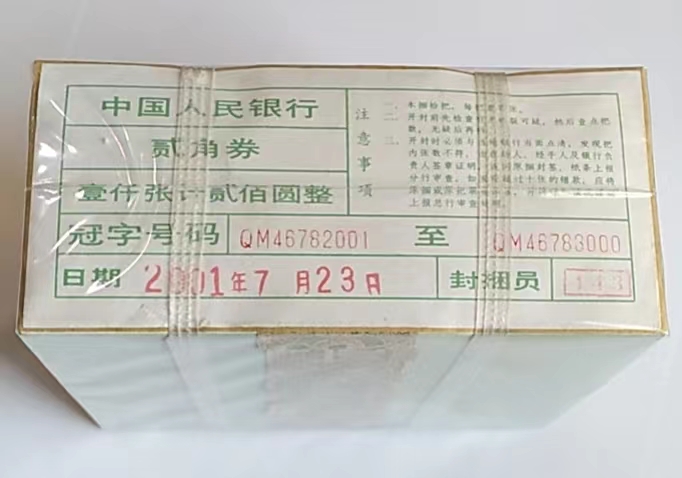 中国人民银行
贰角券
壹仟张计贰佰圆整
冠字号码 QM46782001 至 QM46783000
日期 2001年7月23日 封捆员
注意事项
一、本捆拾把,每把
二、开封前先检查 可疑,然后查点把
数,无缺后再
三、开封时必须与 银行当面点清,发现把
内张数不符, 人、经手人及银行负
责人签章证明, 原捆封签、纸条上报
分行审查。 过十张的错款,应将
原捆或原把
上报总行审查